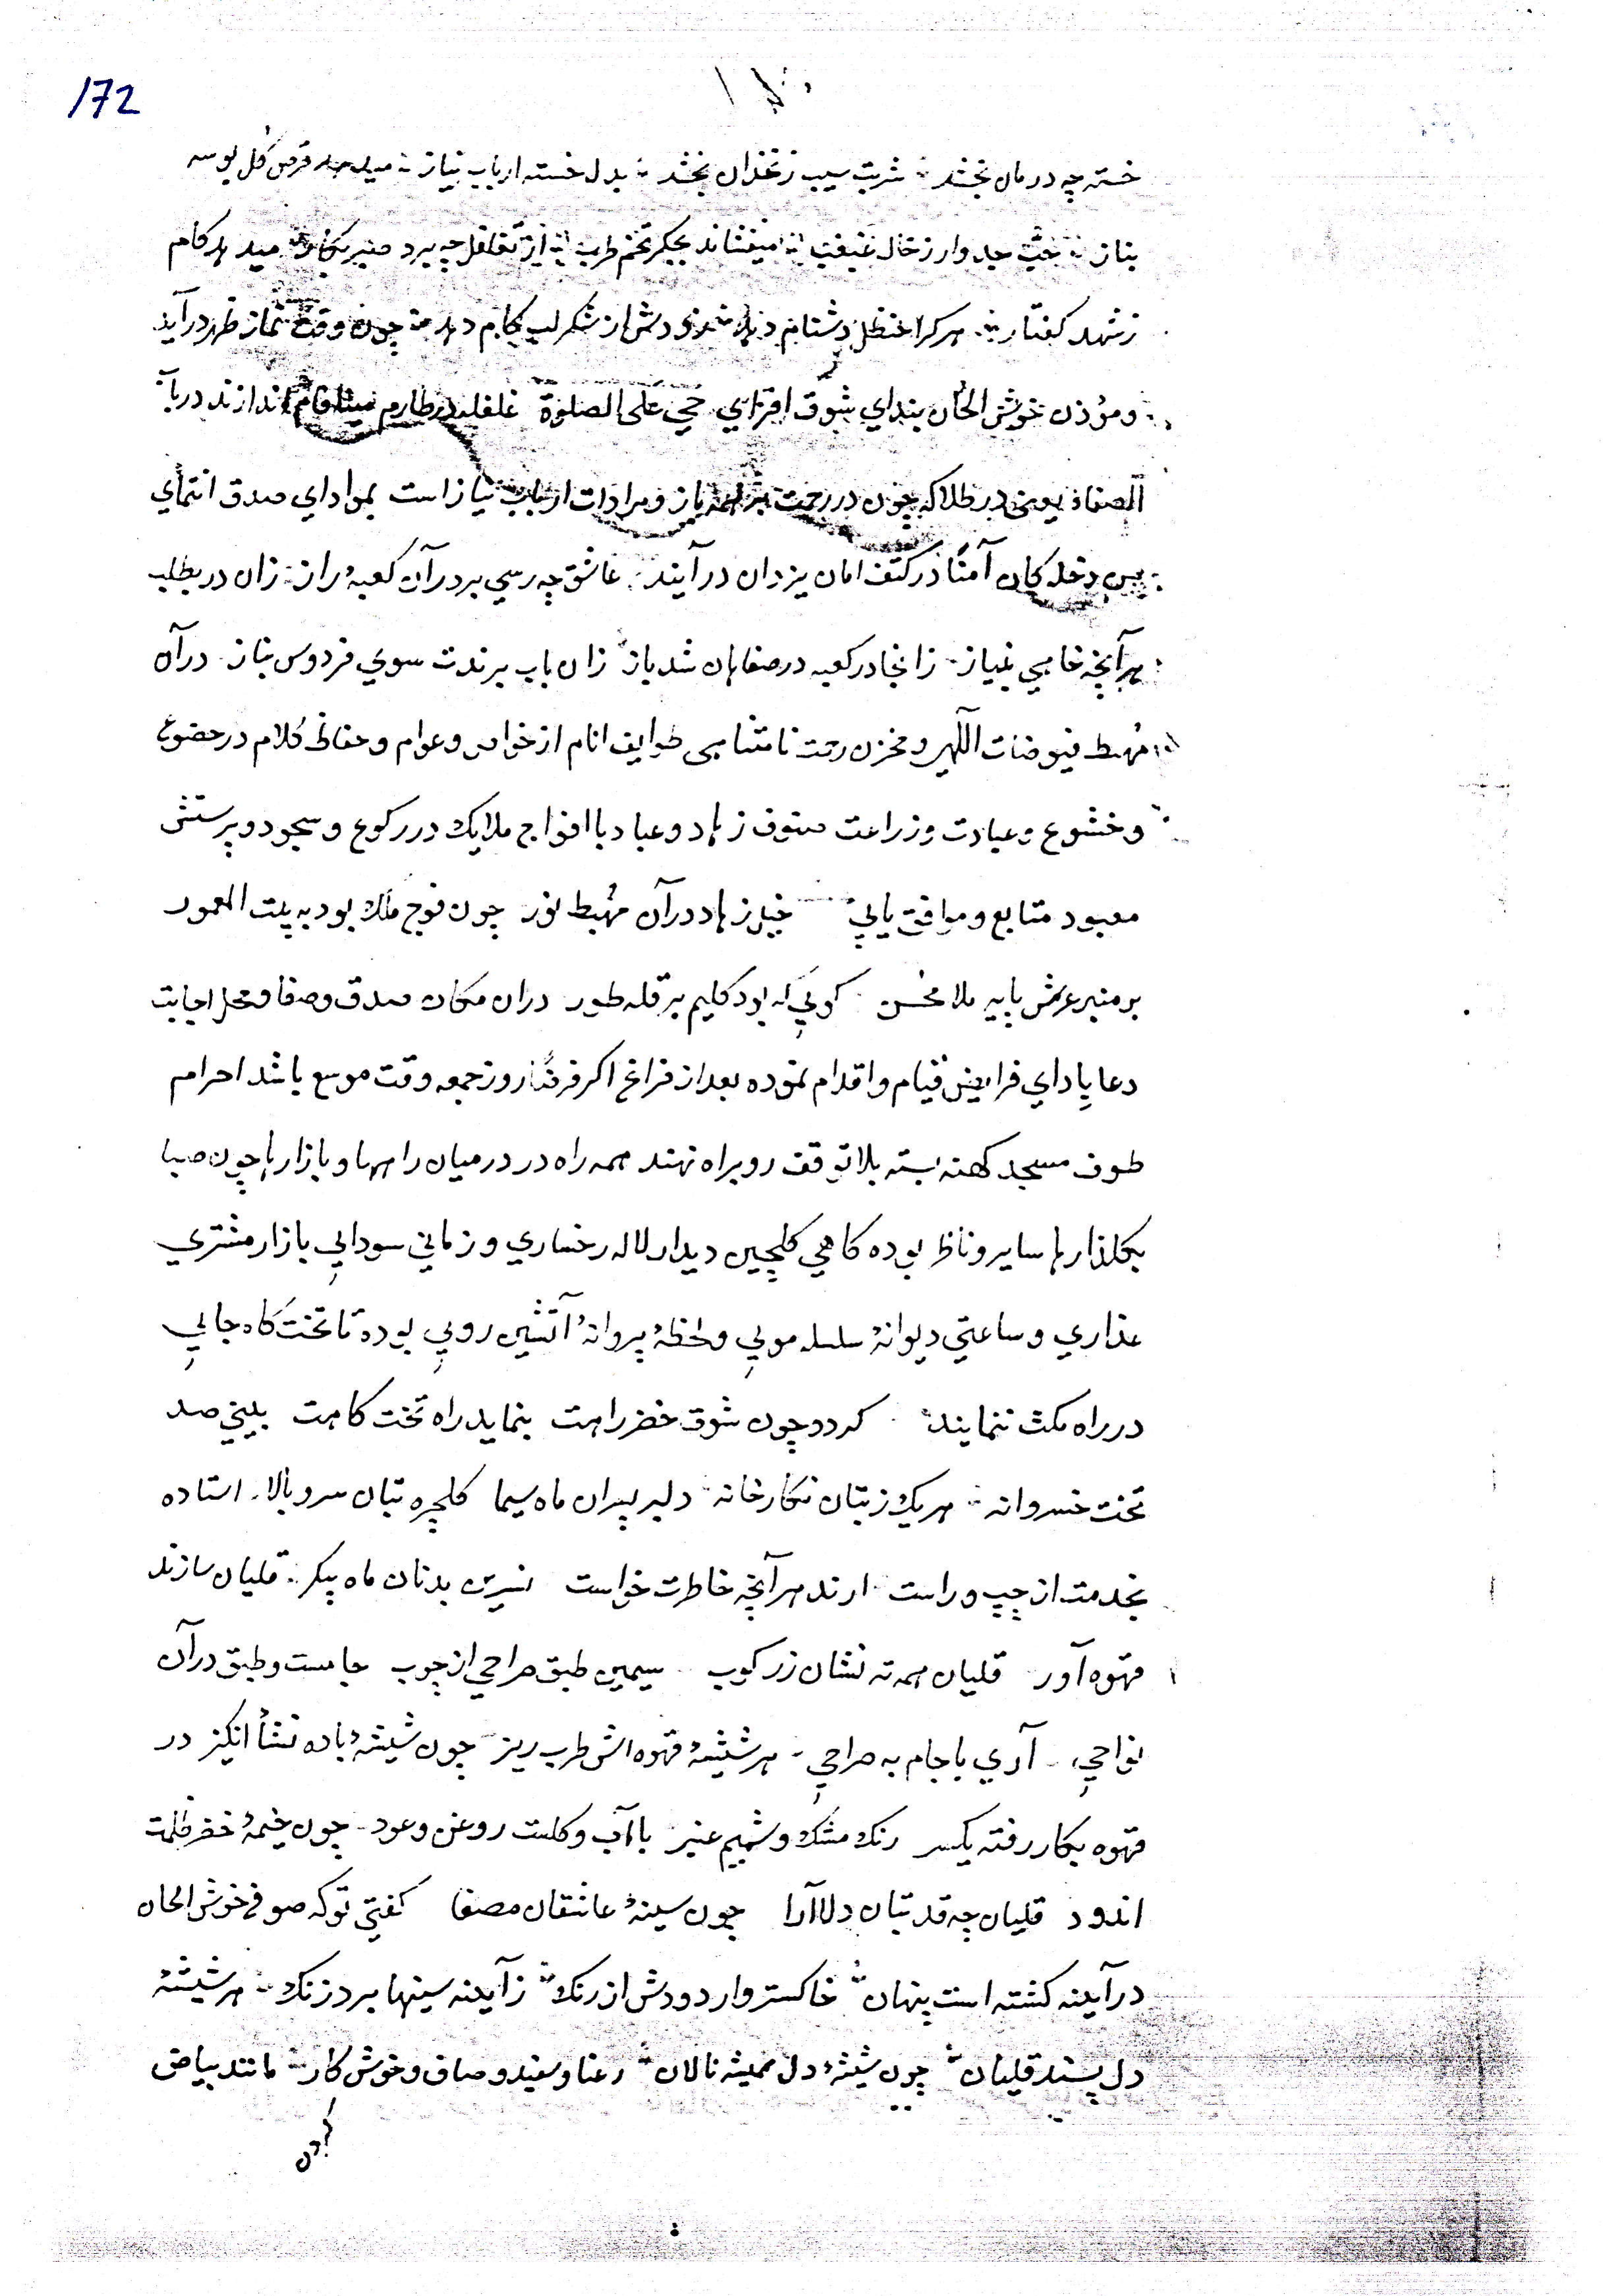 172
خسته چه درمان بخشد ؞ شربت سیب زنخدان بخشد ؞ بدل خسته ارباب نیاز ؞ میدهد قرص گل بوسه
بناز ؞ حب جدوار ز خال غبغب ؞ میفشاند بجگر تخم طرب ؞ از تغافل چه برد صبر بکار ؞ میدهد کام
ز شهد گفتار ؞ هر کرا حنظل دشنام دهد ؞ زودش از شکر لب کام دهد ؞ چون وقت نماز ظهر درآید
و مؤذن خوش الحان بندای شوق افزای حی علی الصلوة غلغله در طارم مینا فام اندازند درباب
الصفا یعنی در طلا که چون در رحمت بر همه باز و مرادات ارباب نیاز است بمواداي صدق انتماي
من دخله کان آمنًا در کنف امان یزدان درآیند ؞ عاشق چه رسي بر در آن کعبهٔ راز ؞ زان در بطلب
هرآنچه خاهي بنیاز ؞ زانجا در کعبه در صفاهان شد باز ؞ زان باب برندت سوي فردوس بناز ؞ در آن
مُهبط فیوضات اللهی و مخزن رحمت نامتناهی طوایف انام از خواص و عوام و حفاظ کلام در خضوع
و خشوع و عبادت و زراعت صفوف زهاد و عباد با افواج ملایک در رکوع و سجود و پرستش
معبود متابع و موافق یابي خیل زهاد در آن مُهبط نور چون فوج ملک بود به بیت المعمور
بر منبر عرش پایه ملا محسن گویي که بود کلیم بر قله طور دران مکان صدق و صفا و محل اجابت
دعا باداي فرایض قیام و اقدام نموده بعد از فراغ اکر فرضًا روز جمعه وقت موسع باشد احرام
طوف مسجد کهنه بسته بلاتوقف رو براه نهند همه راه در درمیان راهها و بازارها چون صبا
بکلذارها سایر و ناظر بوده کاهي کلچین دیدار لاله رخساري و زماني سودایي بازار مشتري
عذاري و ساعتي دیوانهٔ سلسله مویي و لحظهٔ پروانهٔ آتشین رویي بوده تا تخت کاه جایي
در راه مکث ننمایند ؞ کردد چون شوق خضر راهت بنماید راه تخت کاهت بیني صد
تخت خسروانه ؞ هر یک ز بتان نکارخانه ؞ دلبر پسران ماه سیما کلچره بتان سرو بالا ؞ استاده
بخدمت از چپ و راست ؞ ارند هر آنچه خاطرت خواست نسرین بدنان ماه پیکر ؞ قلیان سازند
قهوه آور قلیان همه ته نشان زرکوب ؞ سیمین طبق صراحي از چوب جامست و طبق در آن
نواحي ؞ آري با جام به صراحي ؞ هر شیشهٔ قهوه اش طرب ریز ؞ چون شیشهٔ باده نشأ انکیز در
قهوه بکار رفته یکسر رنک مشک و شمیم عنبر با آب و کلست روغن و عود ؞ چون چشمهٔ خضر ظلمت
اندود قلیان چه قد بتان دلاآرا چون سینهٔ عاشقان مصفا گفتي تو که صوفي خوش الحان
در آینه کشته است پنهان ؞ خاکستر وار دودش از رنک ؞ ز آینه سینها برد زنک ؞ هر شیشهٔ
دل پسند قلیان ؞ چون شیشهٔ دل همیشه نالان ؞ رعنا و سفید و صاف و خوش کار ؞ مانند بیاض
گردن